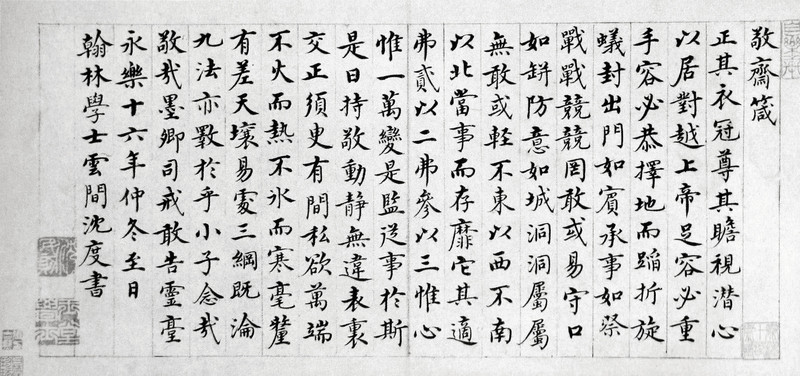 敬齋箴
正其衣冠尊其瞻視潜心
以居對越上帝足容必重
手容必恭擇地而蹈折旋
蟻封出門如賓承事如祭
戰戰兢兢罔敢或易守口
如缾防意如城洞洞屬屬
無敢或軽不東以西不南
以北當事而存靡它其適
弗貳以二弗參以三惟心
惟一萬變是監從事於斯
是曰持敬動靜無違表裏
交正須臾有間私欲萬端
不火而熱不氷而寒毫釐
有差天壤易處三綱既淪
九法亦斁於乎小子念哉
敬哉墨卿司戒敢告靈臺
永樂十六年仲冬至日
翰林學士雲間沈度書